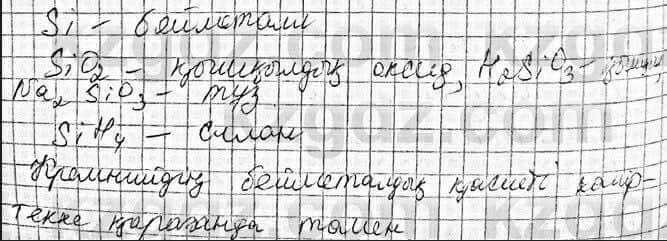 Si – бейметалл
SiO2 – қышқылдық оксид, H2SiO3 – қышқыл
Na2SiO3 – тұз
SiH4 – силан
Кремнийдің бейметалдық қасиеті көмір-
текке қарағанда төмен